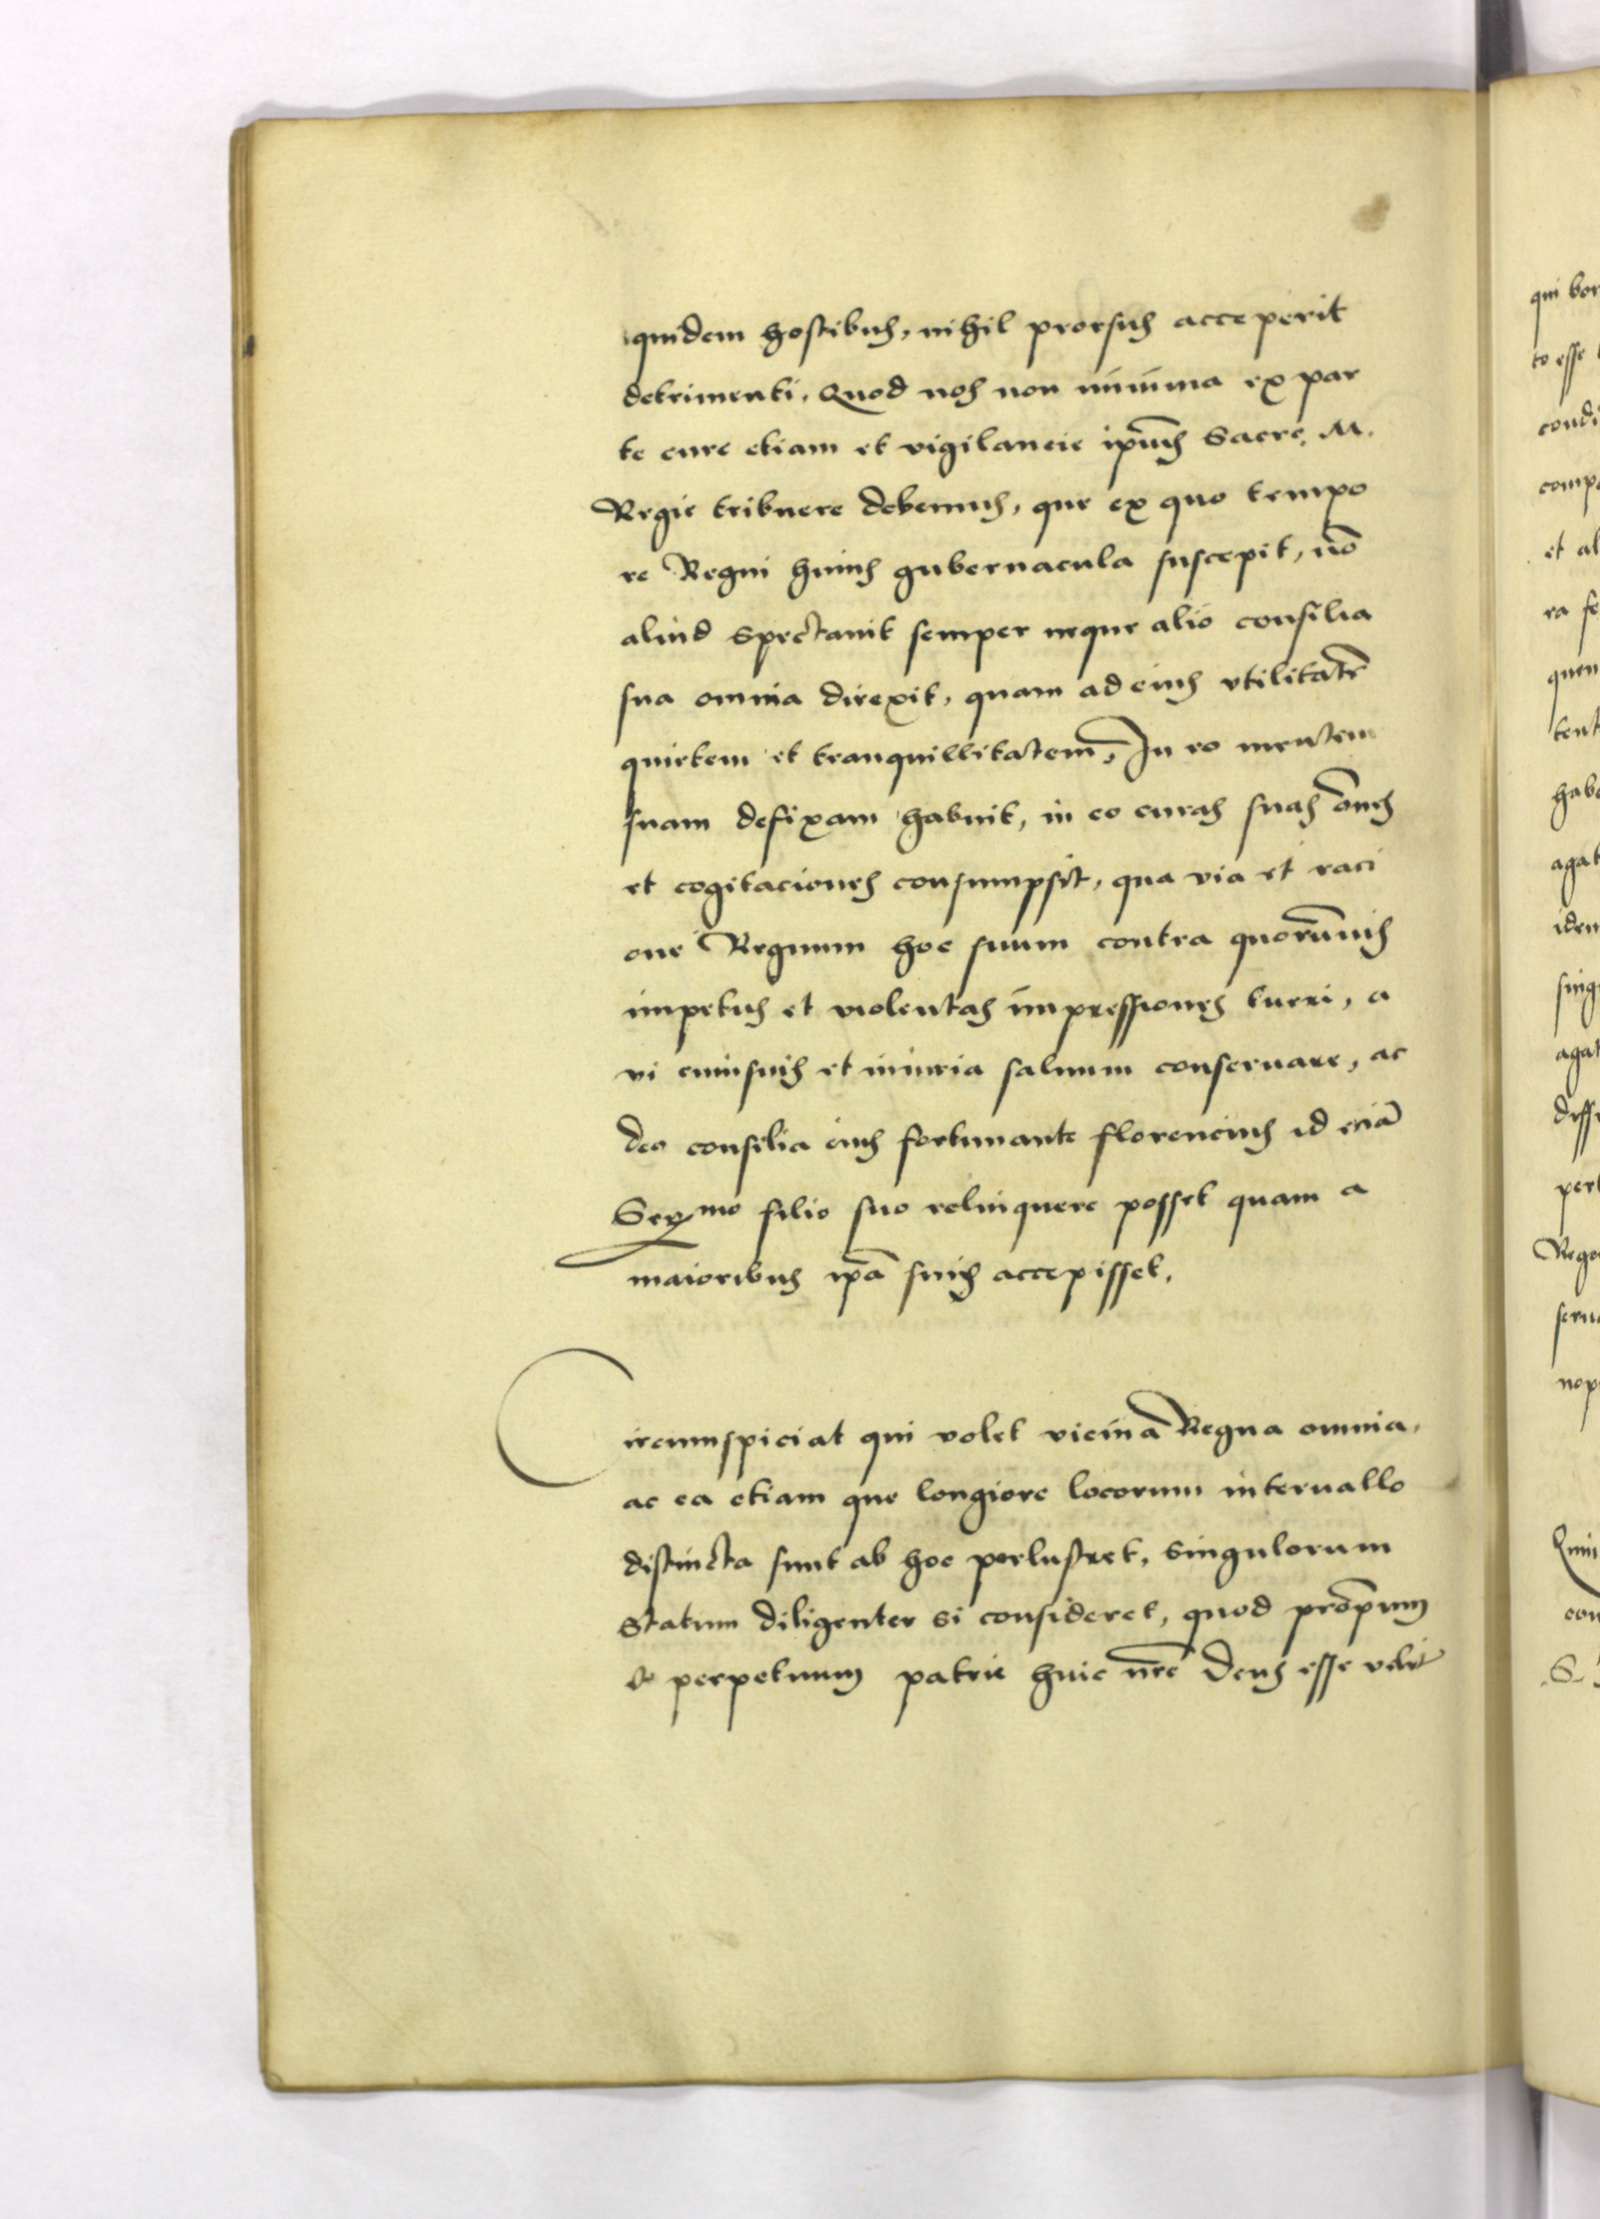 quidem hostibus, nihil prorsus acceperit
detrimenti. Quod nos non minima ex par
te cure etiam et vigilancie ip̄ius Sacre. M.
Regie tribuere debemus, que ex quo tempo
re Regni huius gubernacula suscepit, nō
aliud Spectauit semper neque alio consilia
sua omnia direxit, quam ad eius vtilitatē
quietem et tranquillitatem, In eo mentem
suam defixam habuit, in eo curas suas ōnes
et cogitaciones consumpsit, qua via et raci
one Regnum hoc suum contra quorūuis
impetus et violentas impressiones tueri, a
vi cuiusuis et iniuria saluum conseruare, ac
deo consilia eius fortunante florencius id eciā
Serᵐᵒ filio suo relinquere posset quam a
maioribus ip̄a suis accepisset.
Circumspiciat qui volet vicina Regna omnia,
ac ea etiam que longiore locorum interuallo
distincta sunt ab hoc perlustret, Singulorum
Statum diligenter si consideret, quod prop̄ium
& perpetuum patrie huic nr̄e Deus esse velit
qui bo
to esse
condi
comp
et al
ra fe
quen
tent
habe
agat
iden
sing
agat
diff
pert
Rege
seru
nop
con
S.